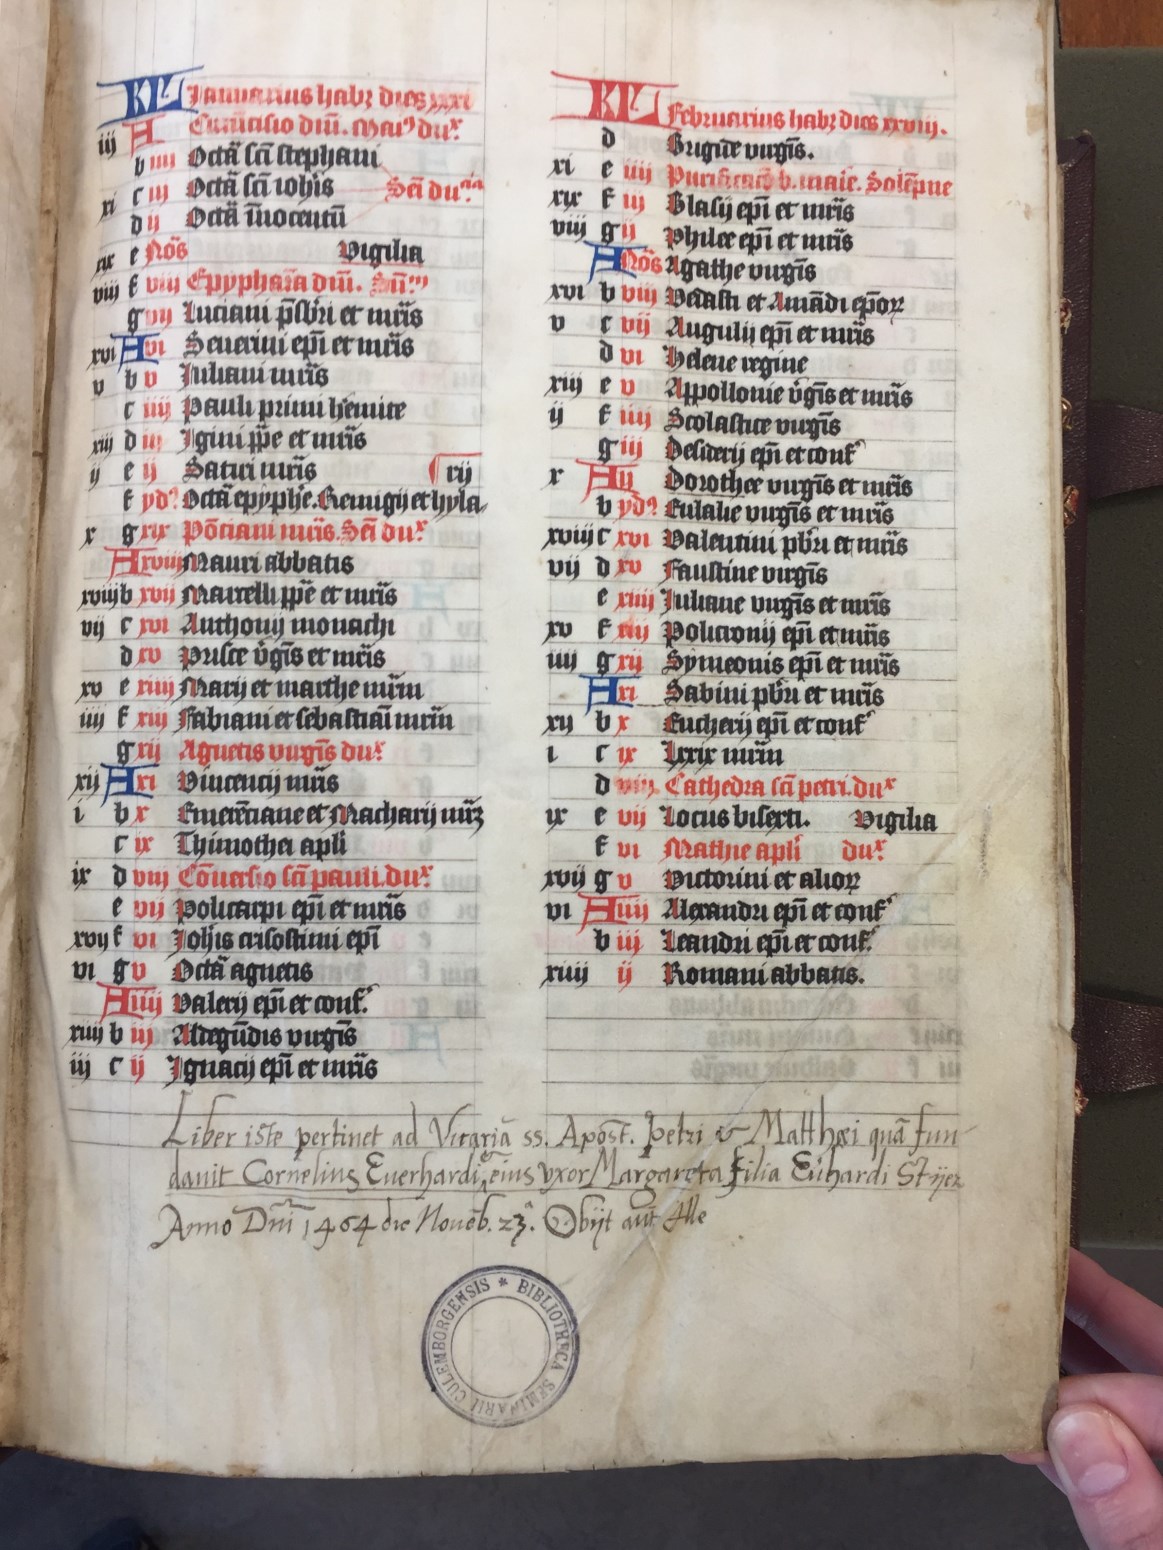 KL Januarius habꝫ dies xxxi
iij A Circu̅cisio dn̅i. mai⁹ duˣ.
b iiij Octa̅ sc̅i stephani
xi c iij Octa̅ sc̅i ioh̅is Sc̅i du
d ij Octa̅ i̅nocentu̅
xix e No̅s Vigilia
viij f viij Epypha̅ia dn̅i.
g vij Luciani p̅sbr̅i et mr̅is
xvi A vi Seuerini ep̅i et mr̅is
v b v Juliani mr̅is
c iiij Pauli primi h̅emite
xiij d iij Igini pp̅e et mr̅is
ij e ij Satiri mr̅is rij
f yd⁹ Octa̅ epyph̅e. Remigij et hyla
x g xix Po̅ciani mr̅is. Sc̅i duˣ.
A xviij Mauri abbatis
xviij b xvij Marcelli pp̅e et mr̅is
vij c xvi Anthonij monachi
d xv Prisce v̅gi̅s et mr̅is
xv e xiiij Marij et marthe mr̅m
iiij f xiij Fabiani et sebastiani mr̅m
g xij Agnetis virgi̅s duˣ
xij A xi Vincencij mr̅is
i b x Emere̅ciane et Macharij mr̅ꝫ
c ix Thimothei apl̅i
ix d viij Co̅uersio sc̅i pauli. duˣ.
e vij Policarpi ep̅i et mr̅is
xvij f vi Joh̅is crisostimi ep̅i
vi g v Octa̅ agnetis
A iiij Valerij ep̅i et conf.
xiiij b iij Aldegu̅dis virgi̅s
iij c ij Ignacij ep̅i et mr̅is
KL Februarius habꝫ dies xxviij.
d Brigide virgi̅s.
xi e iiij Purificac̅o b. marie. Sole̅pne
xix f iij Blasij ep̅i et mr̅is
viij g ij Philee ep̅i et mr̅is
A No̅s Agathe virgi̅s
xvi b viij Vedasti et Ama̅di ep̅oꝝ
v c vij Augulij ep̅i et mr̅is
d vi Helene regine
xiij e v Appollonie v̅gi̅s et mr̅is
ij f iiij Scolastice virgi̅s
g iij Desiderij ep̅i et conf
x A ij Dorothee virgi̅s et mr̅is
b yd⁹ Eulalie virgi̅s et mr̅is
xviij c xvi Valentini pbr̅i et mr̅is
vij d xv Faustine virgi̅s
e xiiij Juliane virgi̅s et mr̅is
xv f xiij Policronij ep̅i et mr̅is
iiij g xij Symeonis ep̅i et mr̅is
A xi Sabini pbr̅i et mr̅is
xij b x Eucherij ep̅i et conf
i c ix Lxxix mr̅m
d viij Cathedra sc̅i petri. duˣ
ix e vij Locus bisexti. Vigilia
f vi Mathie apl̅i duˣ.
xvij g v Victorini et alioꝝ
vi A iiij Alexandri ep̅i et conf
b iij Leandri ep̅i et conf.
xiiij ij Romani abbatis.
Liber iste pertinet ad Vicaria̅ ss. Apost. Petri & Matthæi qua̅ fun-
dauit Cornelius Euerhardi, & eius vxor Margareta filia Euhardi Stijer
Anno Dni̅ 1464 die Noue̅b. 23. Obijt aut ille
BIBLIOTHECA SEMINARII CULEMBORGENSIS *